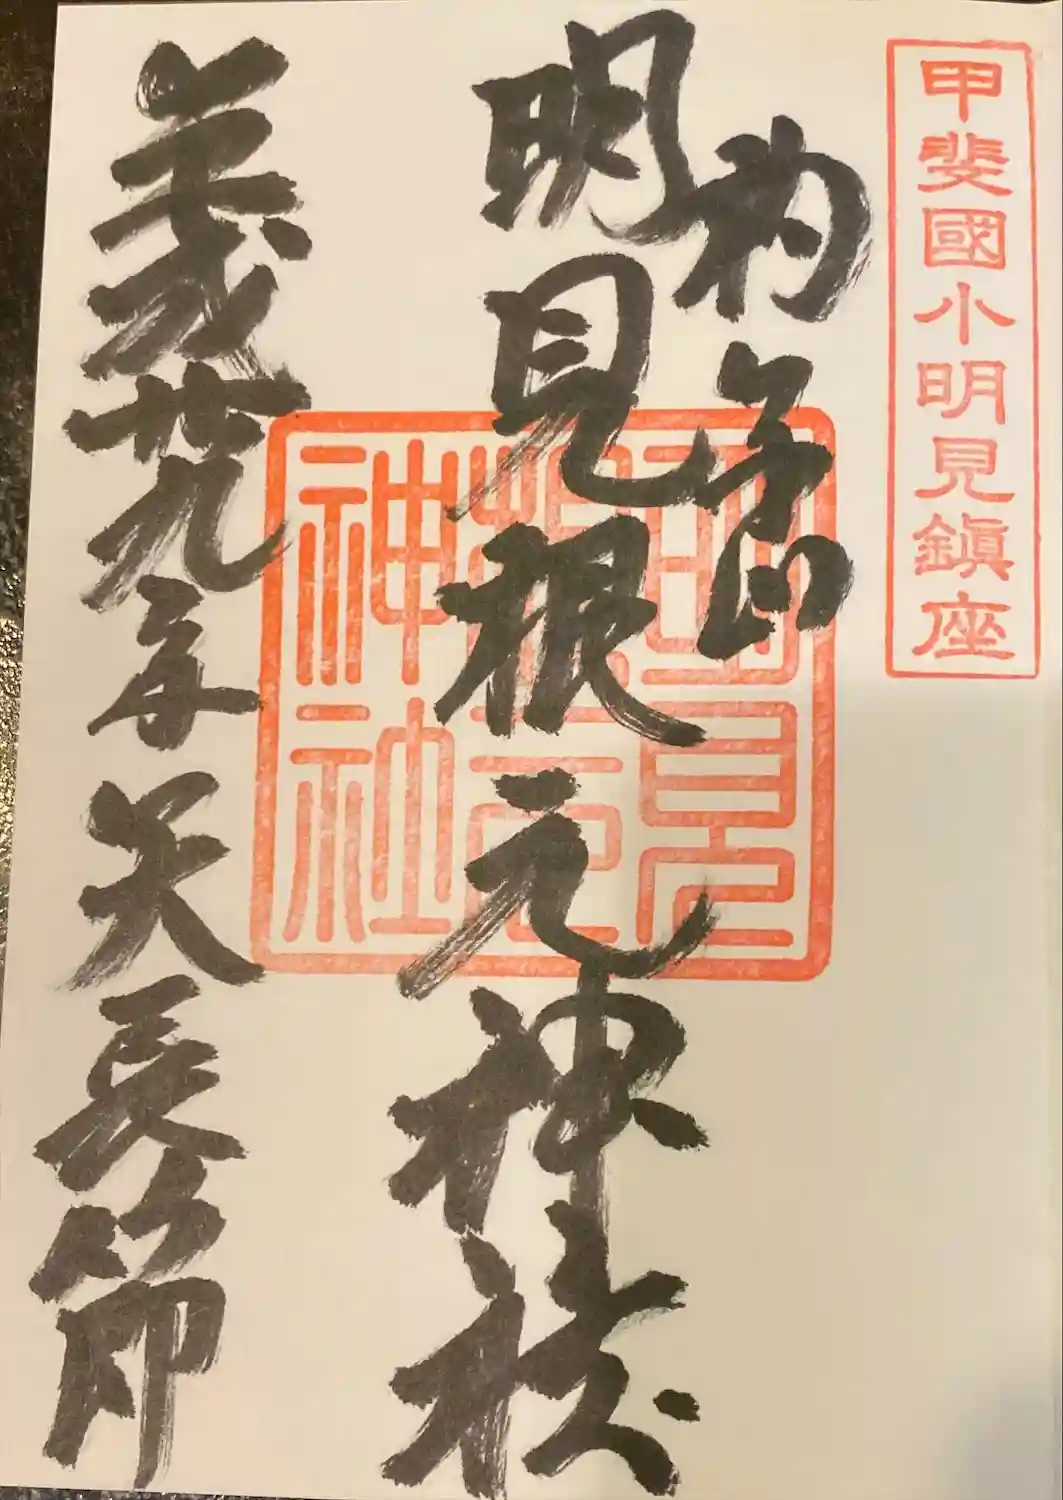 甲斐國小明見鎮座
明見根元神社
平成廿九年天長節
明見
根元
神社